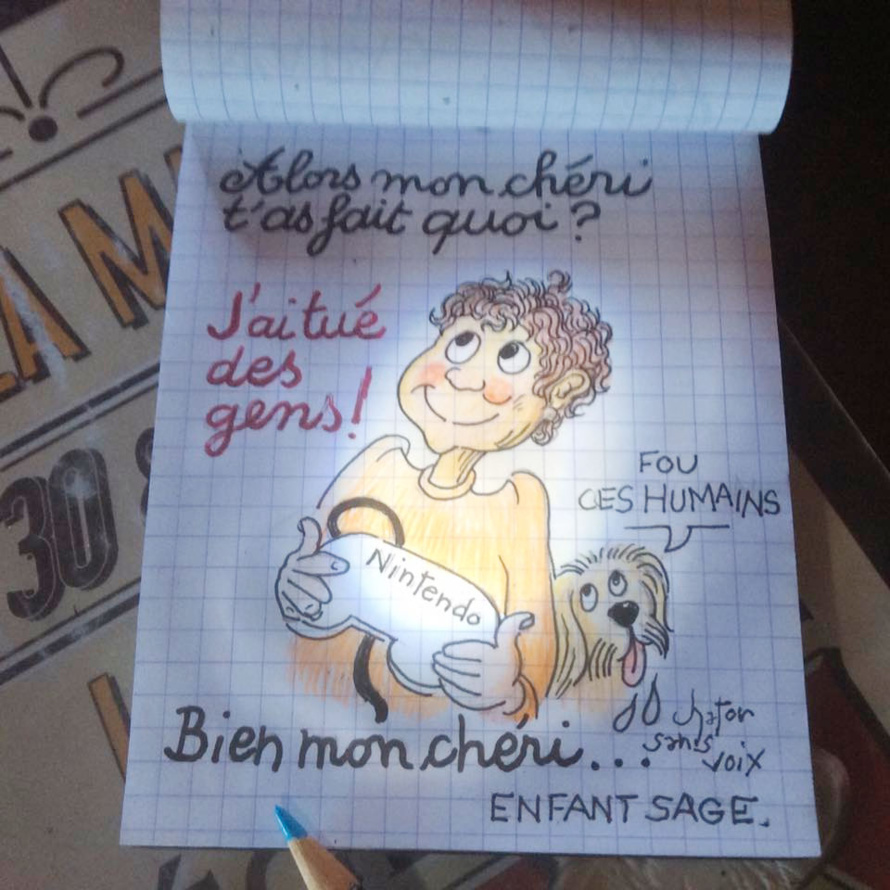 Alors mon chéri
t'as fait quoi ?
J'ai tué
des
gens !
FOU
CES HUMAINS
Nintendo
Bien mon chéri...
chaton
sans
voix
ENFANT SAGE.
LA M
30